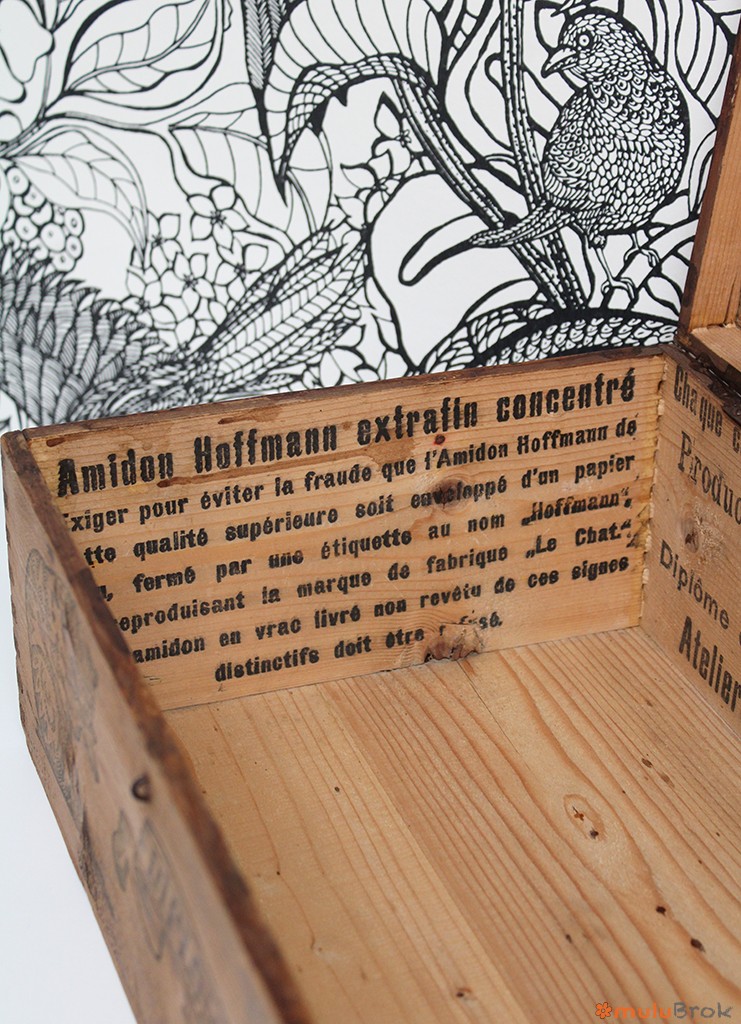 Amidon Hoffmann extrafin concentré
Exiger pour éviter la fraude que l'Amidon Hoffmann de
tte qualité supérieure soit enveloppé d'un papier
fermé par une étiquette au nom „Hoffmann",
eproduisant la marque de fabrique „Le Chat."
amidon en vrac livré non revêtu de ces signes
distinctifs doit être
Chaque
Produ
Diplôme
Atelier
muluBrok